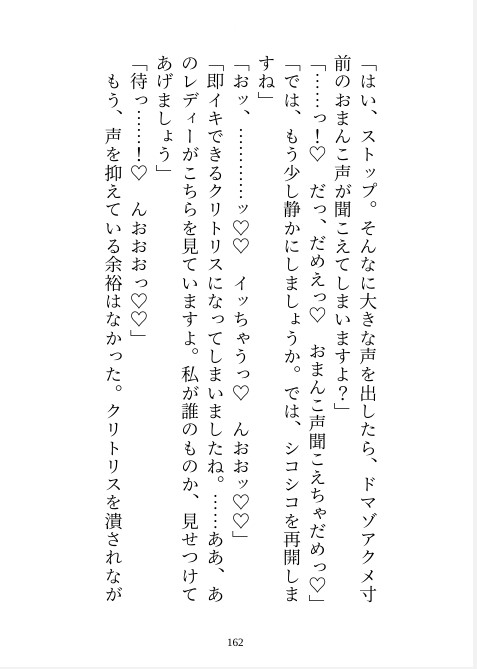 「はい、ストップ。そんなに大きな声を出したら、ドマゾアクメ寸
前のおまんこ声が聞こえてしまいますよ？」
「……っ！♡　だっ、だめえっ♡　おまんこ声聞こえちゃだめっ♡」
「では、もう少し静かにしましょうか。では、シコシコを再開しま
すね」
「おッ、…………ッ♡♡　イッちゃうっ♡　んおおッ♡♡」
「即イキできるクリトリスになってしまいましたね。……ああ、あ
のレディーがこちらを見ていますよ。私が誰のものか、見せつけて
あげましょう」
「待っ……！♡　んおおおっ♡♡」
　もう、声を抑えている余裕はなかった。クリトリスを潰されなが
162